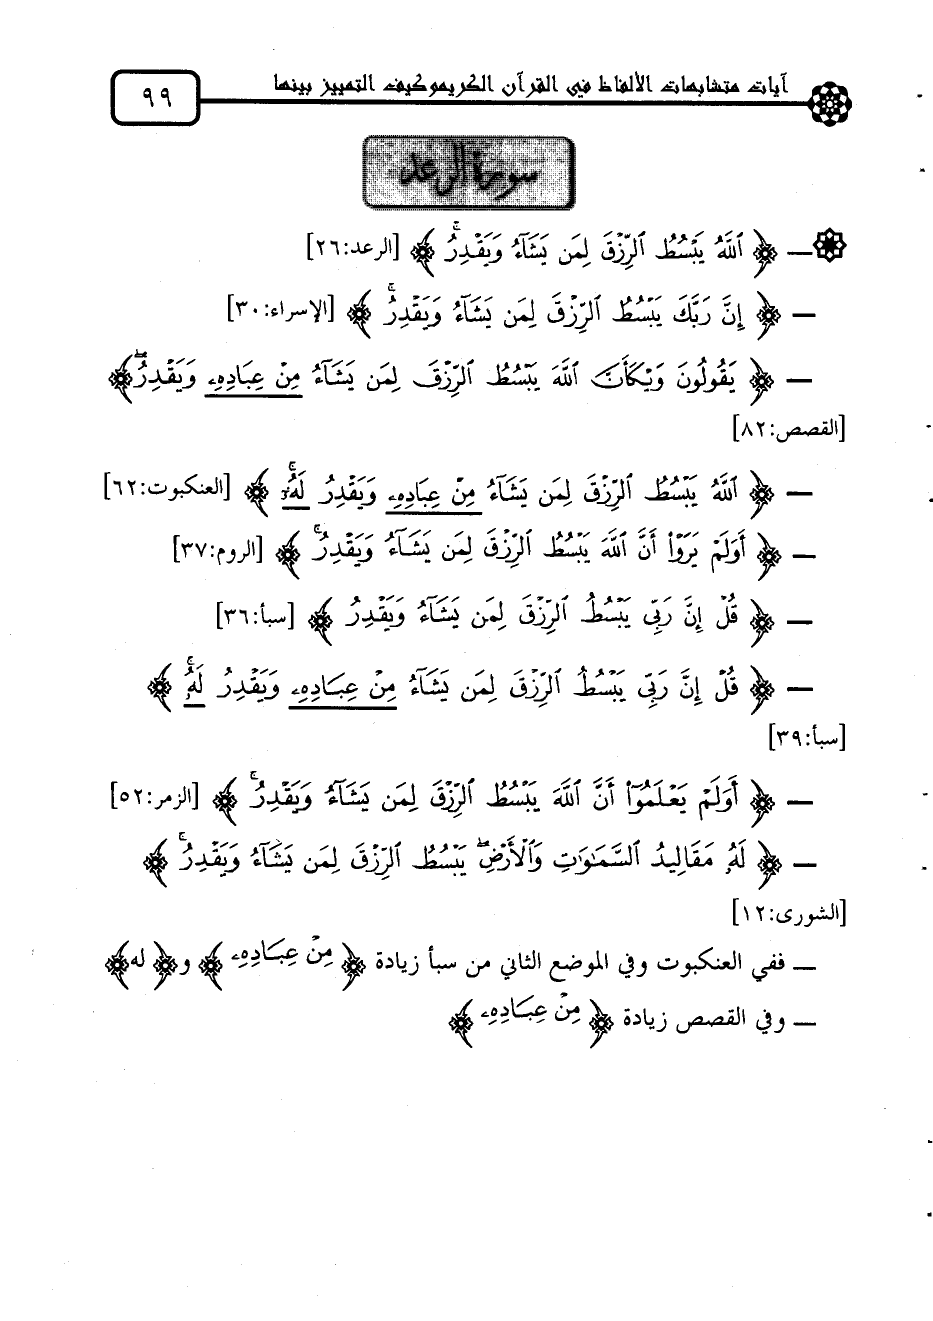 آيات متشابهات الألفاظ في القرآن الكريم وكيف التمييز بينها
٩٩
سورة الرعد
— ﴿ ٱللَّهُ يَبْسُطُ ٱلرِّزْقَ لِمَن يَشَآءُ وَيَقْدِرُ ۚ ﴾ [الرعد:٢٦]
— ﴿ إِنَّ رَبَّكَ يَبْسُطُ ٱلرِّزْقَ لِمَن يَشَآءُ وَيَقْدِرُ ۚ ﴾ [الإسراء:٣٠]
— ﴿ يَقُولُونَ وَيْكَأَنَّ ٱللَّهَ يَبْسُطُ ٱلرِّزْقَ لِمَن يَشَآءُ مِنْ عِبَادِهِۦ وَيَقْدِرُ ۖ ﴾
[القصص:٨٢]
— ﴿ ٱللَّهُ يَبْسُطُ ٱلرِّزْقَ لِمَن يَشَآءُ مِنْ عِبَادِهِۦ وَيَقْدِرُ لَهُۥٓ ۚ ﴾ [العنكبوت:٦٢]
— ﴿ أَوَلَمْ يَرَوْا۟ أَنَّ ٱللَّهَ يَبْسُطُ ٱلرِّزْقَ لِمَن يَشَآءُ وَيَقْدِرُ ۚ ﴾ [الروم:٣٧]
— ﴿ قُلْ إِنَّ رَبِّى يَبْسُطُ ٱلرِّزْقَ لِمَن يَشَآءُ وَيَقْدِرُ ﴾ [سبأ:٣٦]
— ﴿ قُلْ إِنَّ رَبِّى يَبْسُطُ ٱلرِّزْقَ لِمَن يَشَآءُ مِنْ عِبَادِهِۦ وَيَقْدِرُ لَهُۥ ۚ ﴾
[سبأ:٣٩]
— ﴿ أَوَلَمْ يَعْلَمُوٓا۟ أَنَّ ٱللَّهَ يَبْسُطُ ٱلرِّزْقَ لِمَن يَشَآءُ وَيَقْدِرُ ۚ ﴾ [الزمر:٥٢]
— ﴿ لَهُۥ مَقَالِيدُ ٱلسَّمَـٰوَٰتِ وَٱلْأَرْضِ ۖ يَبْسُطُ ٱلرِّزْقَ لِمَن يَشَآءُ وَيَقْدِرُ ۚ ﴾
[الشورى:١٢]
— ففي العنكبوت وفي الموضع الثاني من سبأ زيادة ﴿ مِنْ عِبَادِهِۦ ﴾ و﴿ له ﴾
— وفي القصص زيادة ﴿ مِنْ عِبَادِهِۦ ﴾